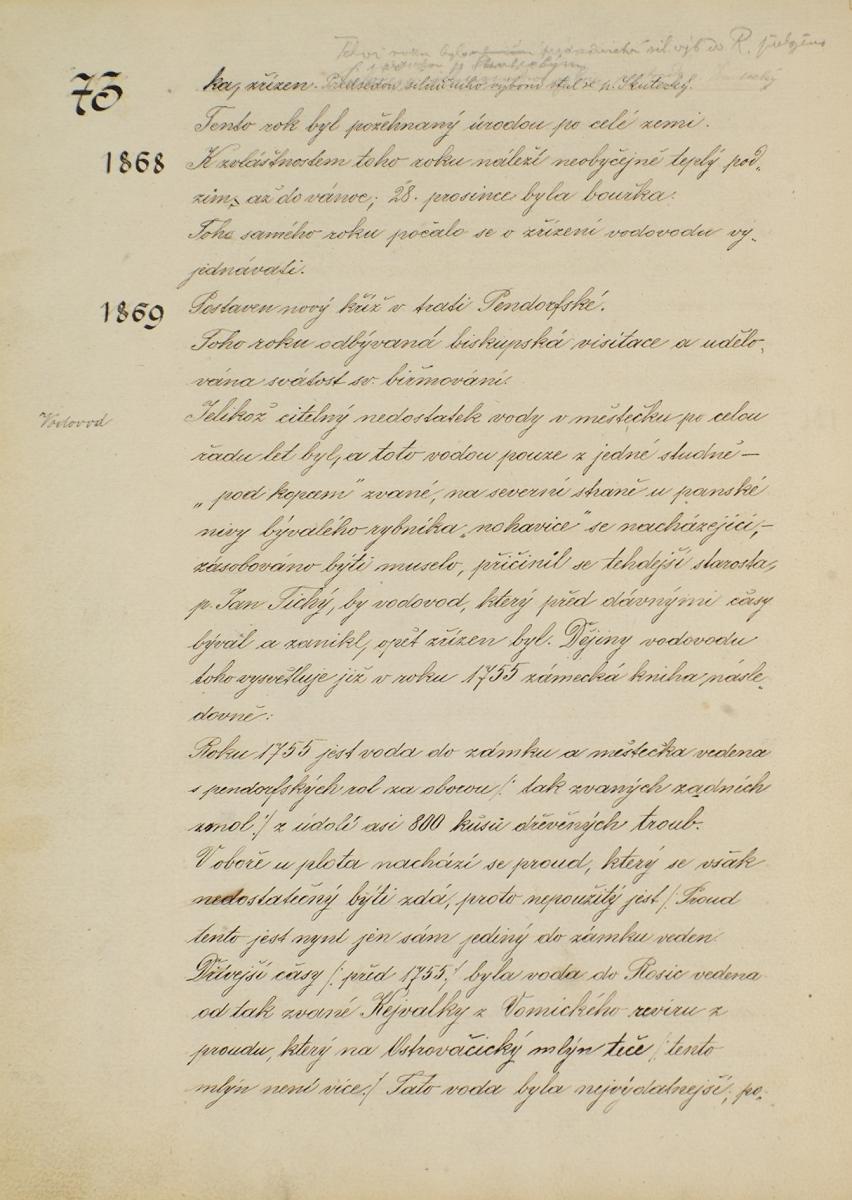 75
ka, zřízen. Předsedou silničního výboru stal se p. Skutecký.
Tento rok byl požehnaný úrodou po celé zemi.
1868 K zvláštnostem toho roku náleží neobyčejně teplý pod-
zim, až do vánoc; 28. prosince byla bouřka.
Toho samého roku počalo se o zřízení vodovodu vy-
jednávati.
1869 Postaven nový kříž v trati Pendorfské.
Toho roku odbývaná biskupská visitace a udělo-
vána svátost sv. biřmování.
Vodovod
Jelikož citelný nedostatek vody v městečku po celou
řadu let byl, a toto vodou pouze z jedné studně –
„pod kopcem" zvané, na severní straně u panské
nivy bývalého rybníka „nohavice" se nacházející, –
zásobováno býti muselo, přičinil se tehdejší starosta,
p. Jan Tichý, by vodovod, který před dávnými časy
býval a zanikl, opět zřízen byl. Dějiny vodovodu
toho vysvětluje již v roku 1755 zámecká kniha násle-
dovně:
Roku 1755 jest voda do zámku a městečka vedena
s pendorfských rol za oborou /: tak zvaných zadních
zmol :/ z údolí asi 800 kusů dřevěných troub.
V oboře u plota nachází se proud, který se však
nedostatečný býti zdá, proto nepoužitý jest /: Proud
tento jest nyní jen sám jediný do zámku veden.
Dřívejší časy /: před 1755 :/ byla voda do Rosic vedena
od tak zvané Kejvalky z Domického reviru z
proudu, který na Ostrovačický mlýn teče /: tento
mlýn není více :/ Tato voda byla nejvýdatnejší; po-